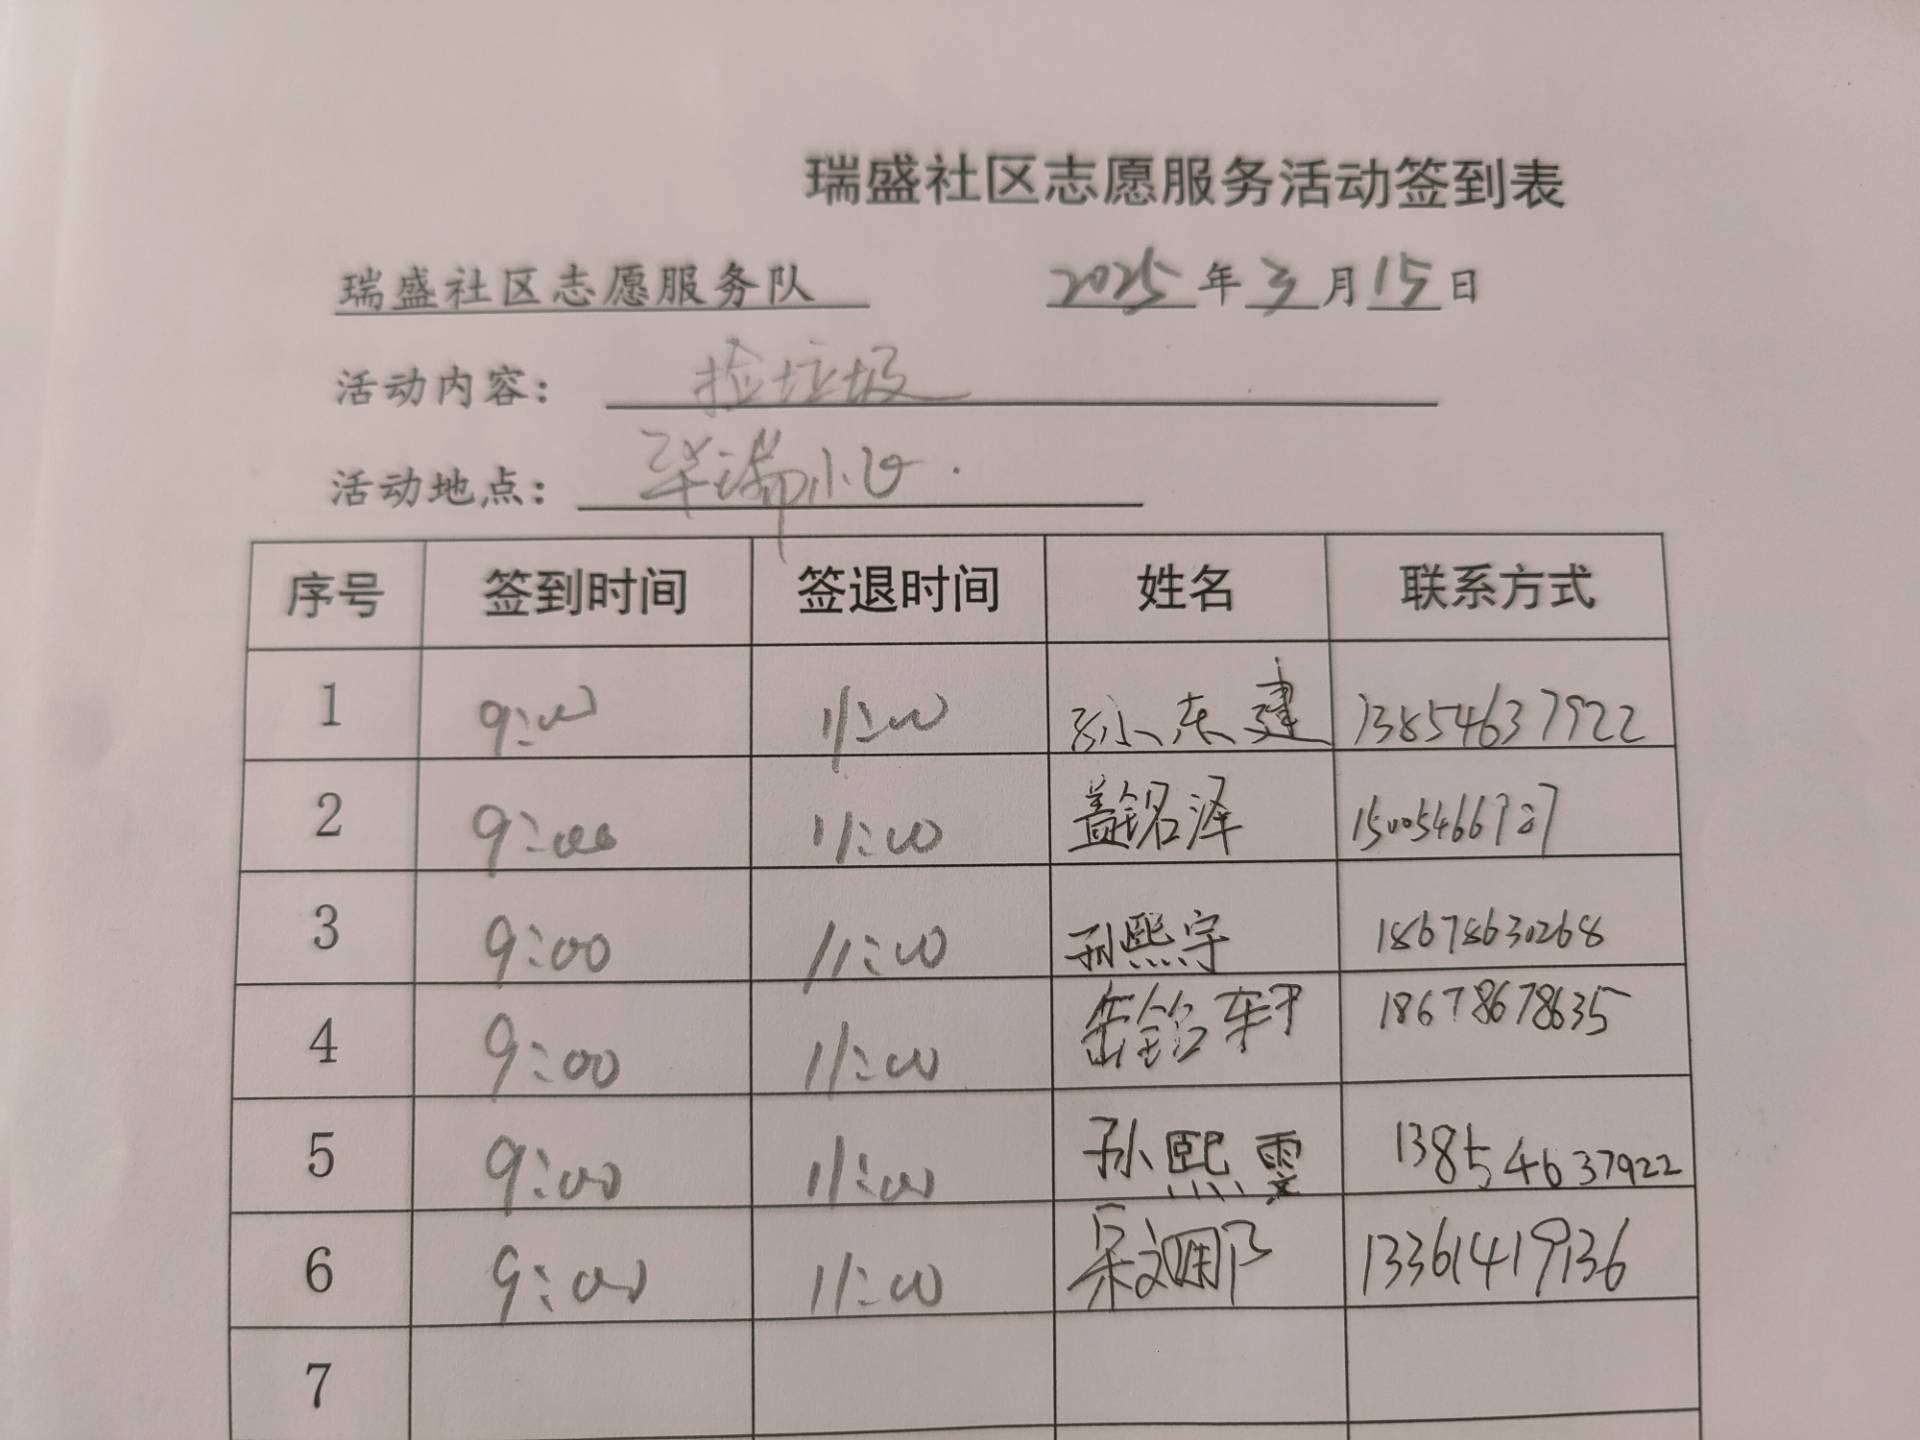 瑞盛社区志愿服务活动签到表
瑞盛社区志愿服务队 2025年3月15日
活动内容: 捡垃圾
活动地点: 瑞小区.
序号 签到时间 签退时间 姓名 联系方式
1 9:00 11:00 孙东建 13854637922
2 9:00 11:00 盖铭泽
3 9:00 11:00 孙熙宇 18678630268
4 9:00 11:00 岳铭轩 18678678635
5 9:00 11:00 孙熙雯 13854637922
6 9:00 11:00 13361419136
7